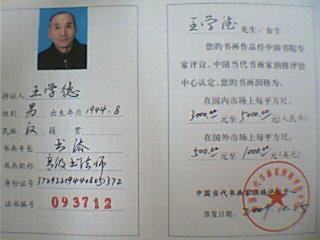 持证人 王学德
性别 男 出生年月 1944.8
民族 汉 籍贯
书画专长 书法
高级书法师
身份证号
证书编号 093712
王学德 先生/女士
您的书画作品经中国书院专
家评议、中国当代书画家润格评估
中心认定,您的书画润格为
在国内市场上每平方尺,
3000.00 元至 5000.00 元(人民币)
在国外市场上每平方尺,
500.00 元至 1000 元(美元)
中国当代书画家润格评估中心
签发日期: